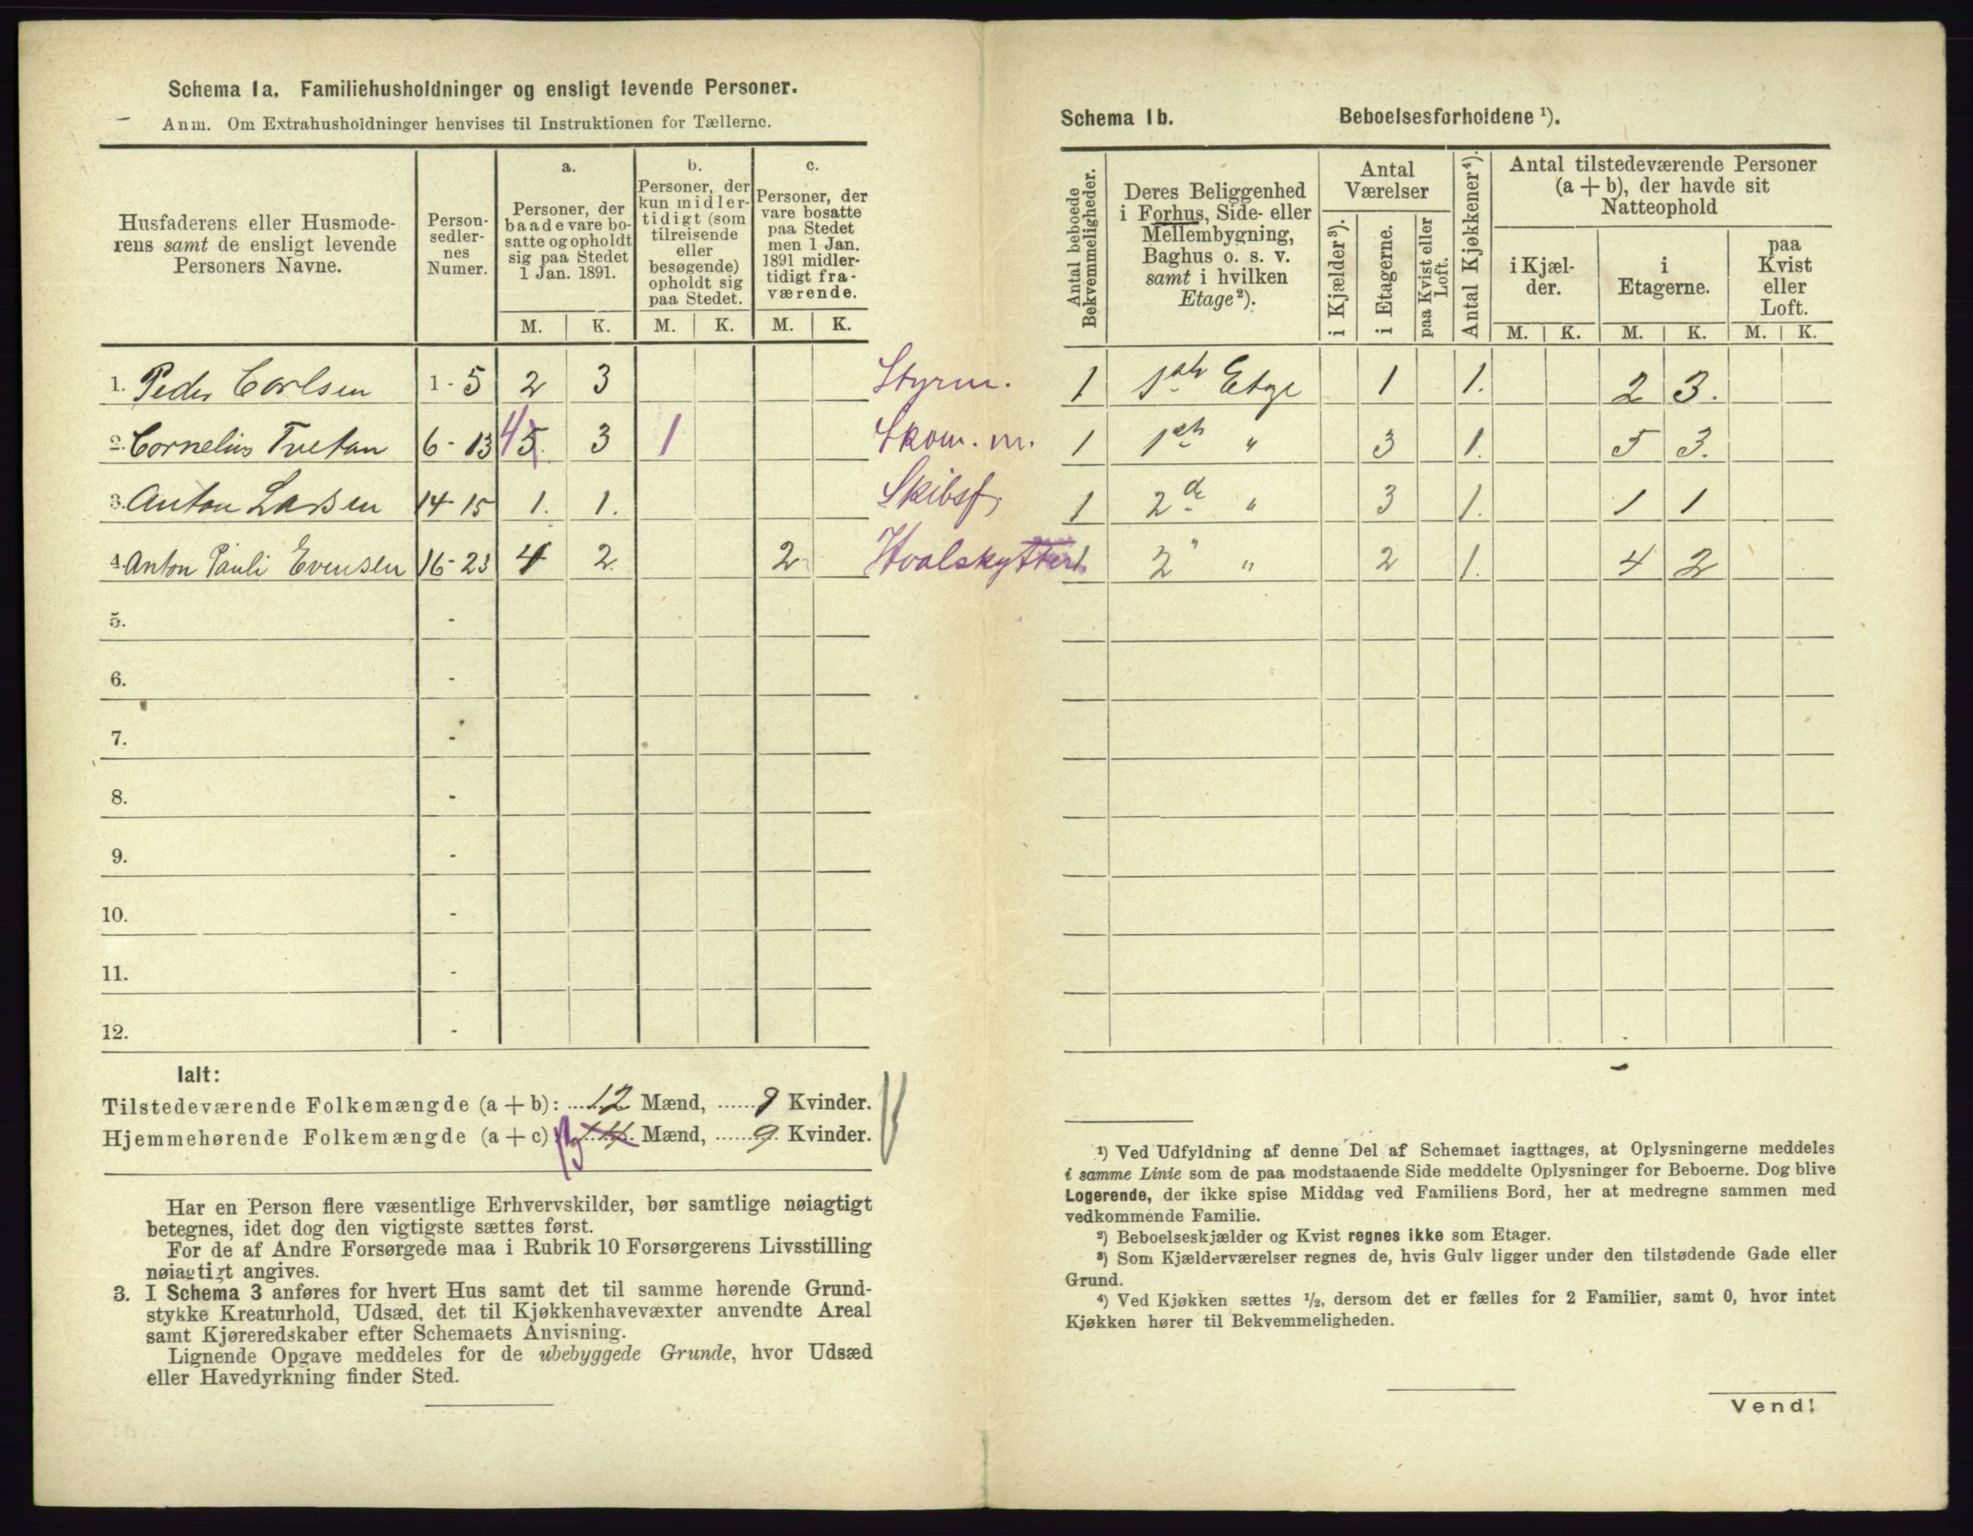 Schema 1a. Familiehusholdninger og ensligt levende Personer.
Anm. Om Extrahusholdninger henvises til Instruktionen for Tællerne.
Husfaderens eller Husmode-
rens samt de ensligt levende
Personers Navne.
Person-
sedler-
nes
Numer.
a.
Personer, der
baade vare bo-
satte og opholdt
sig paa Stedet
1 Jan. 1891.
b.
Personer, der
kun midler-
tidigt (som
tilreisende
eller
besøgende)
opholdt sig
paa Stedet.
c.
Personer, der
vare bosatte
paa Stedet
men 1 Jan.
1891 midler-
tidigt fra-
værende.
M. K. M. K. M. K.
1. Peder Carlsen 1 - 5 2 3 Styrm.
2. Cornelius Tvetan 6 - 13 4 5 3 1 Skom. m.
3. Anton Larsen 14 - 15 1. 1. Skibsf.
4. Anton Pauli Evensen 16 - 23 4 2 2 Hvalskytter
5. -
6. -
7. -
8. -
9. -
10. -
11. -
12. -
Ialt:
Tilstedeværende Folkemængde (a + b): 12 Mænd, 9 Kvinder.
Hjemmehørende Folkemængde (a + c): 13 14 Mænd, 9 Kvinder.
Har en Person flere væsentlige Erhvervskilder, bør samtlige nøiagtigt
betegnes, idet dog den vigtigste sættes først.
For de af Andre Forsørgede maa i Rubrik 10 Forsørgerens Livsstilling
nøiagtigt angives.
3. I Schema 3 anføres for hvert Hus samt det til samme hørende Grund-
stykke Kreaturhold, Udsæd, det til Kjøkkenhavevæxter anvendte Areal
samt Kjøreredskaber efter Schemaets Anvisning.
Lignende Opgave meddeles for de ubebyggede Grunde, hvor Udsæd
eller Havedyrkning finder Sted.
Schema 1b. Beboelsesforholdene ¹).
Antal beboede
Bekvemmeligheder.
Deres Beliggenhed
i Forhus, Side- eller
Mellembygning,
Baghus o. s. v.
samt i hvilken
Etage²).
Antal
Værelser
i Kjælder³).
i Etagerne.
paa Kvist eller
Loft.
Antal Kjøkkener⁴).
Antal tilstedeværende Personer
(a + b), der havde sit
Natteophold
i Kjæl-
der.
i
Etagerne.
paa
Kvist
eller
Loft.
M. K. M. K. M. K.
1 1ste Etage 1 1. 2 3.
1 1ste " 3 1. 5 3.
1 2de " 3 1. 1 1
1. 2" " 2 1. 4 2
¹) Ved Udfyldning af denne Del af Schemaet iagttages, at Oplysningerne meddeles
i samme Linie som de paa modstaaende Side meddelte Oplysninger for Beboerne. Dog blive
Logerende, der ikke spise Middag ved Familiens Bord, her at medregne sammen med
vedkommende Familie.
²) Beboelseskjælder og Kvist regnes ikke som Etager.
³) Som Kjælderværelser regnes de, hvis Gulv ligger under den tilstødende Gade eller
Grund.
⁴) Ved Kjøkken sættes ½, dersom det er fælles for 2 Familier, samt 0, hvor intet
Kjøkken hører til Bekvemmeligheden.
Vend!